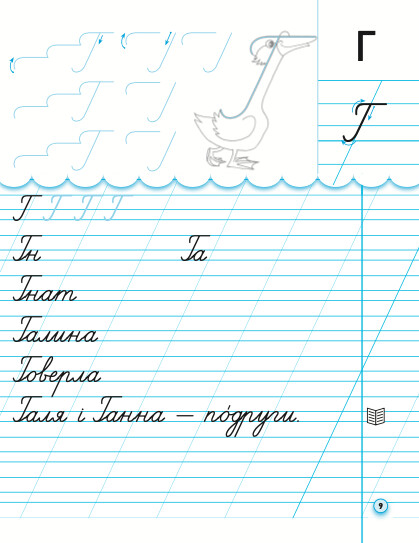 Г
Г
Г Г Г Г
Гн Га
Гнат
Галина
Говерла
Галя і Ганна — по́други.
9